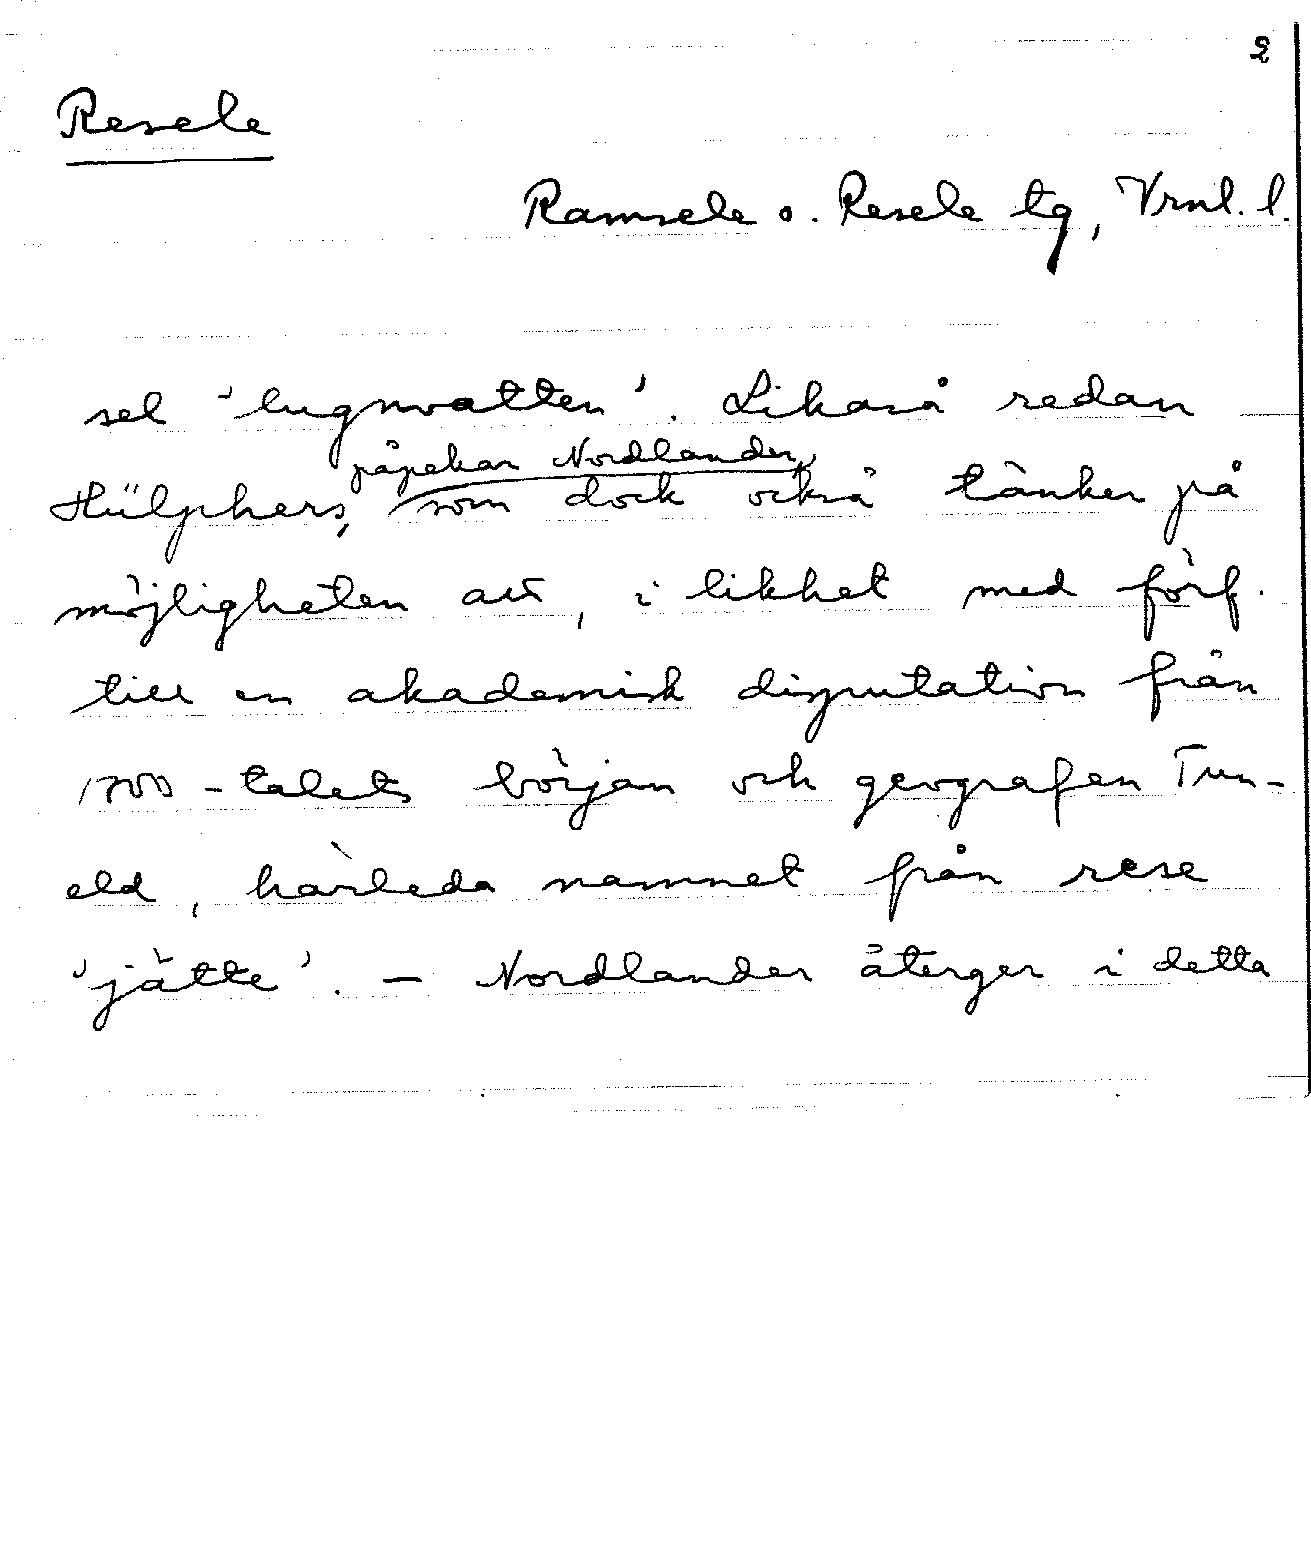 2
Resele
Ramsele o. Resele tg, Vrnl. l.
sel 'lugnvatten'. Likaså redan
påpekar Nordlander,
Hülphers, som dock också tänker på
möjligheten att, i likhet med förf.
till en akademisk disputation från
1700-talets början och geografen Tun-
eld, härleda namnet från rese
'jätte'. – Nordlander återger i detta